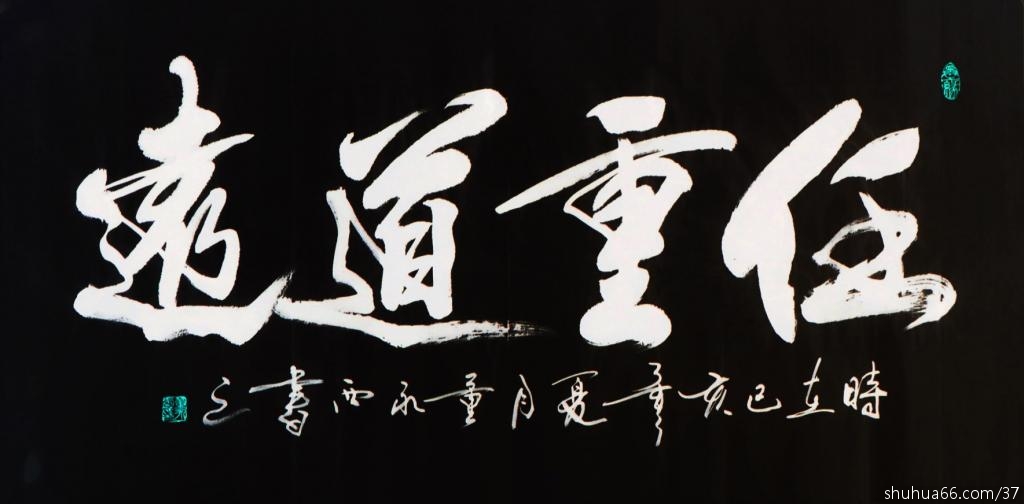 任重道遠
時在己亥年夏月董永西書之
shuhua66.com/37